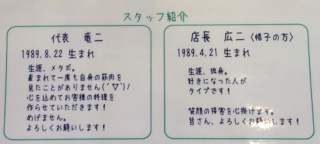 スタッフ紹介
代表 竜二
1989.8.22 生まれ
生涯、メタボ。
産まれて一度も自身の筋肉を
見たことがありません(´▽`)ﾉ
心を込めてお客様の料理を
作らせていただきます!
めげません。
よろしくお願いします!
店長 広二 (帽子の方)
1989.4.21 生まれ
生涯、独身。
好きになった人が
タイプです!
笑顔の接客を心掛けます。
皆さん、よろしくお願いします!